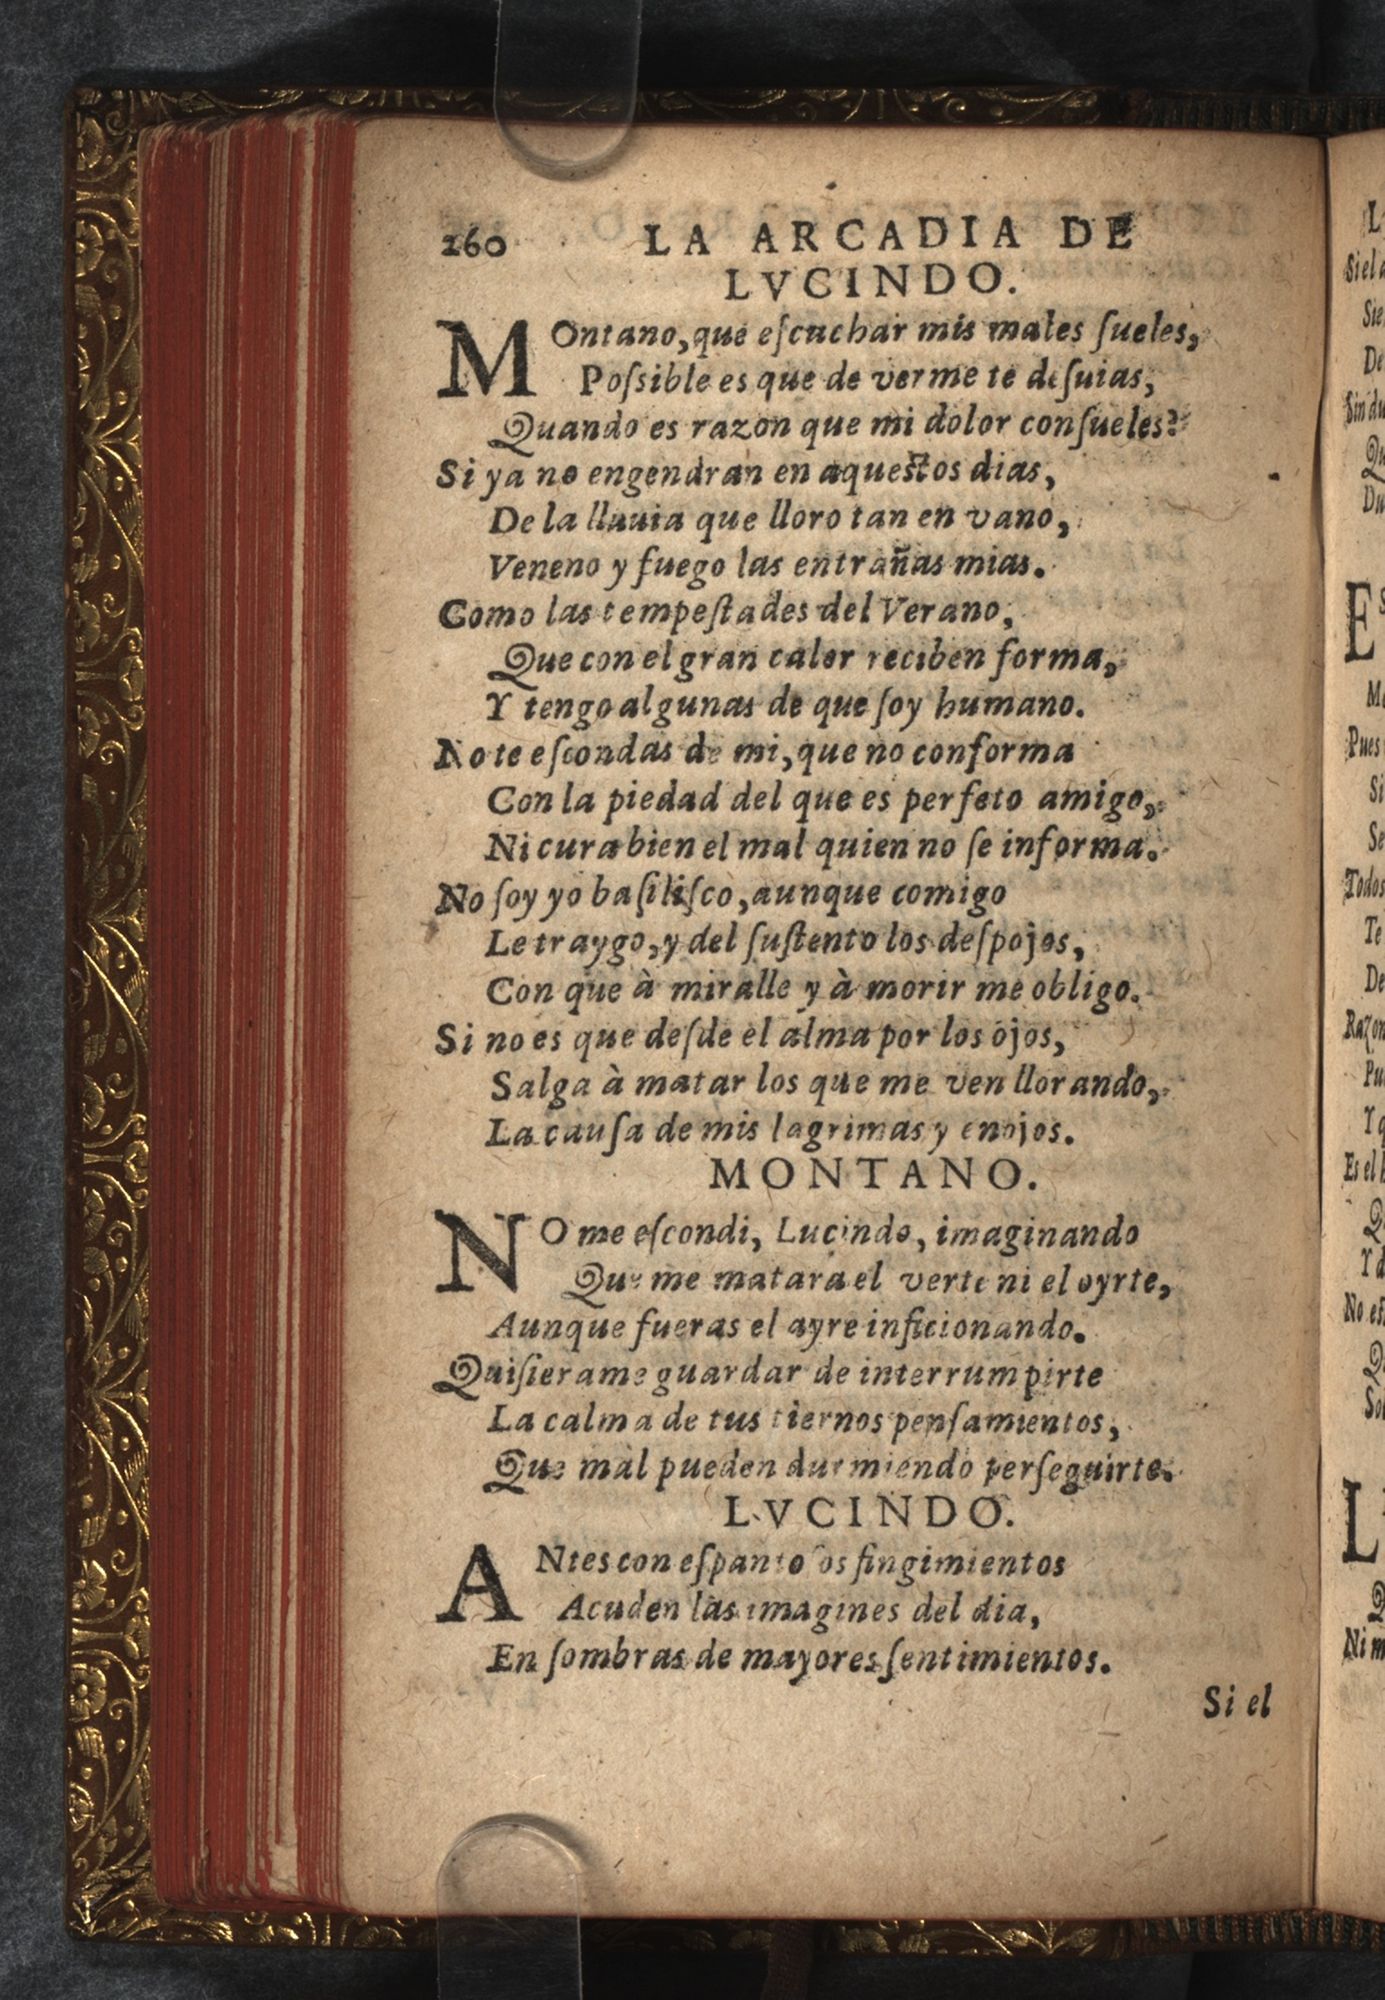 260 LA ARCADIA DE
LVCINDO.
MOntano, que eſcuchar mis males ſueles,
Poſsible es que de verme te deſuias,
Quando es razon que mi dolor conſueles?
Si ya no engendran en aqueſtos dias,
De la lluuia que lloro tan en vano,
Veneno y fuego las entrañas mias.
Como las tempeſtades del Verano,
Que con el gran calor reciben forma,
Y tengo algunas de que ſoy humano.
No te eſcondas de mi, que no conforma
Con la piedad del que es perfeto amigo,
Ni cura bien el mal quien no ſe informa.
No ſoy yo baſiliſco, aunque comigo
Le traygo, y del ſuſtento los deſpojos,
Con que à miralle y à morir me obligo.
Si no es que deſde el alma por los ojos,
Salga à matar los que me ven llorando,
La cauſa de mis lagrimas y enojos.
MONTANO.
NO me eſcondi, Lucindo, imaginando
Que me matara el verte ni el oyrte,
Aunque fueras el ayre inficionando.
Quiſierame guardar de interrumpirte
La calma de tus tiernos penſamientos,
Que mal pueden durmiendo perſeguirte.
LVCINDO.
ANtes con eſpantoſos fingimientos
Acuden las imagines del dia,
En ſombras de mayores ſentimientos.
Si el